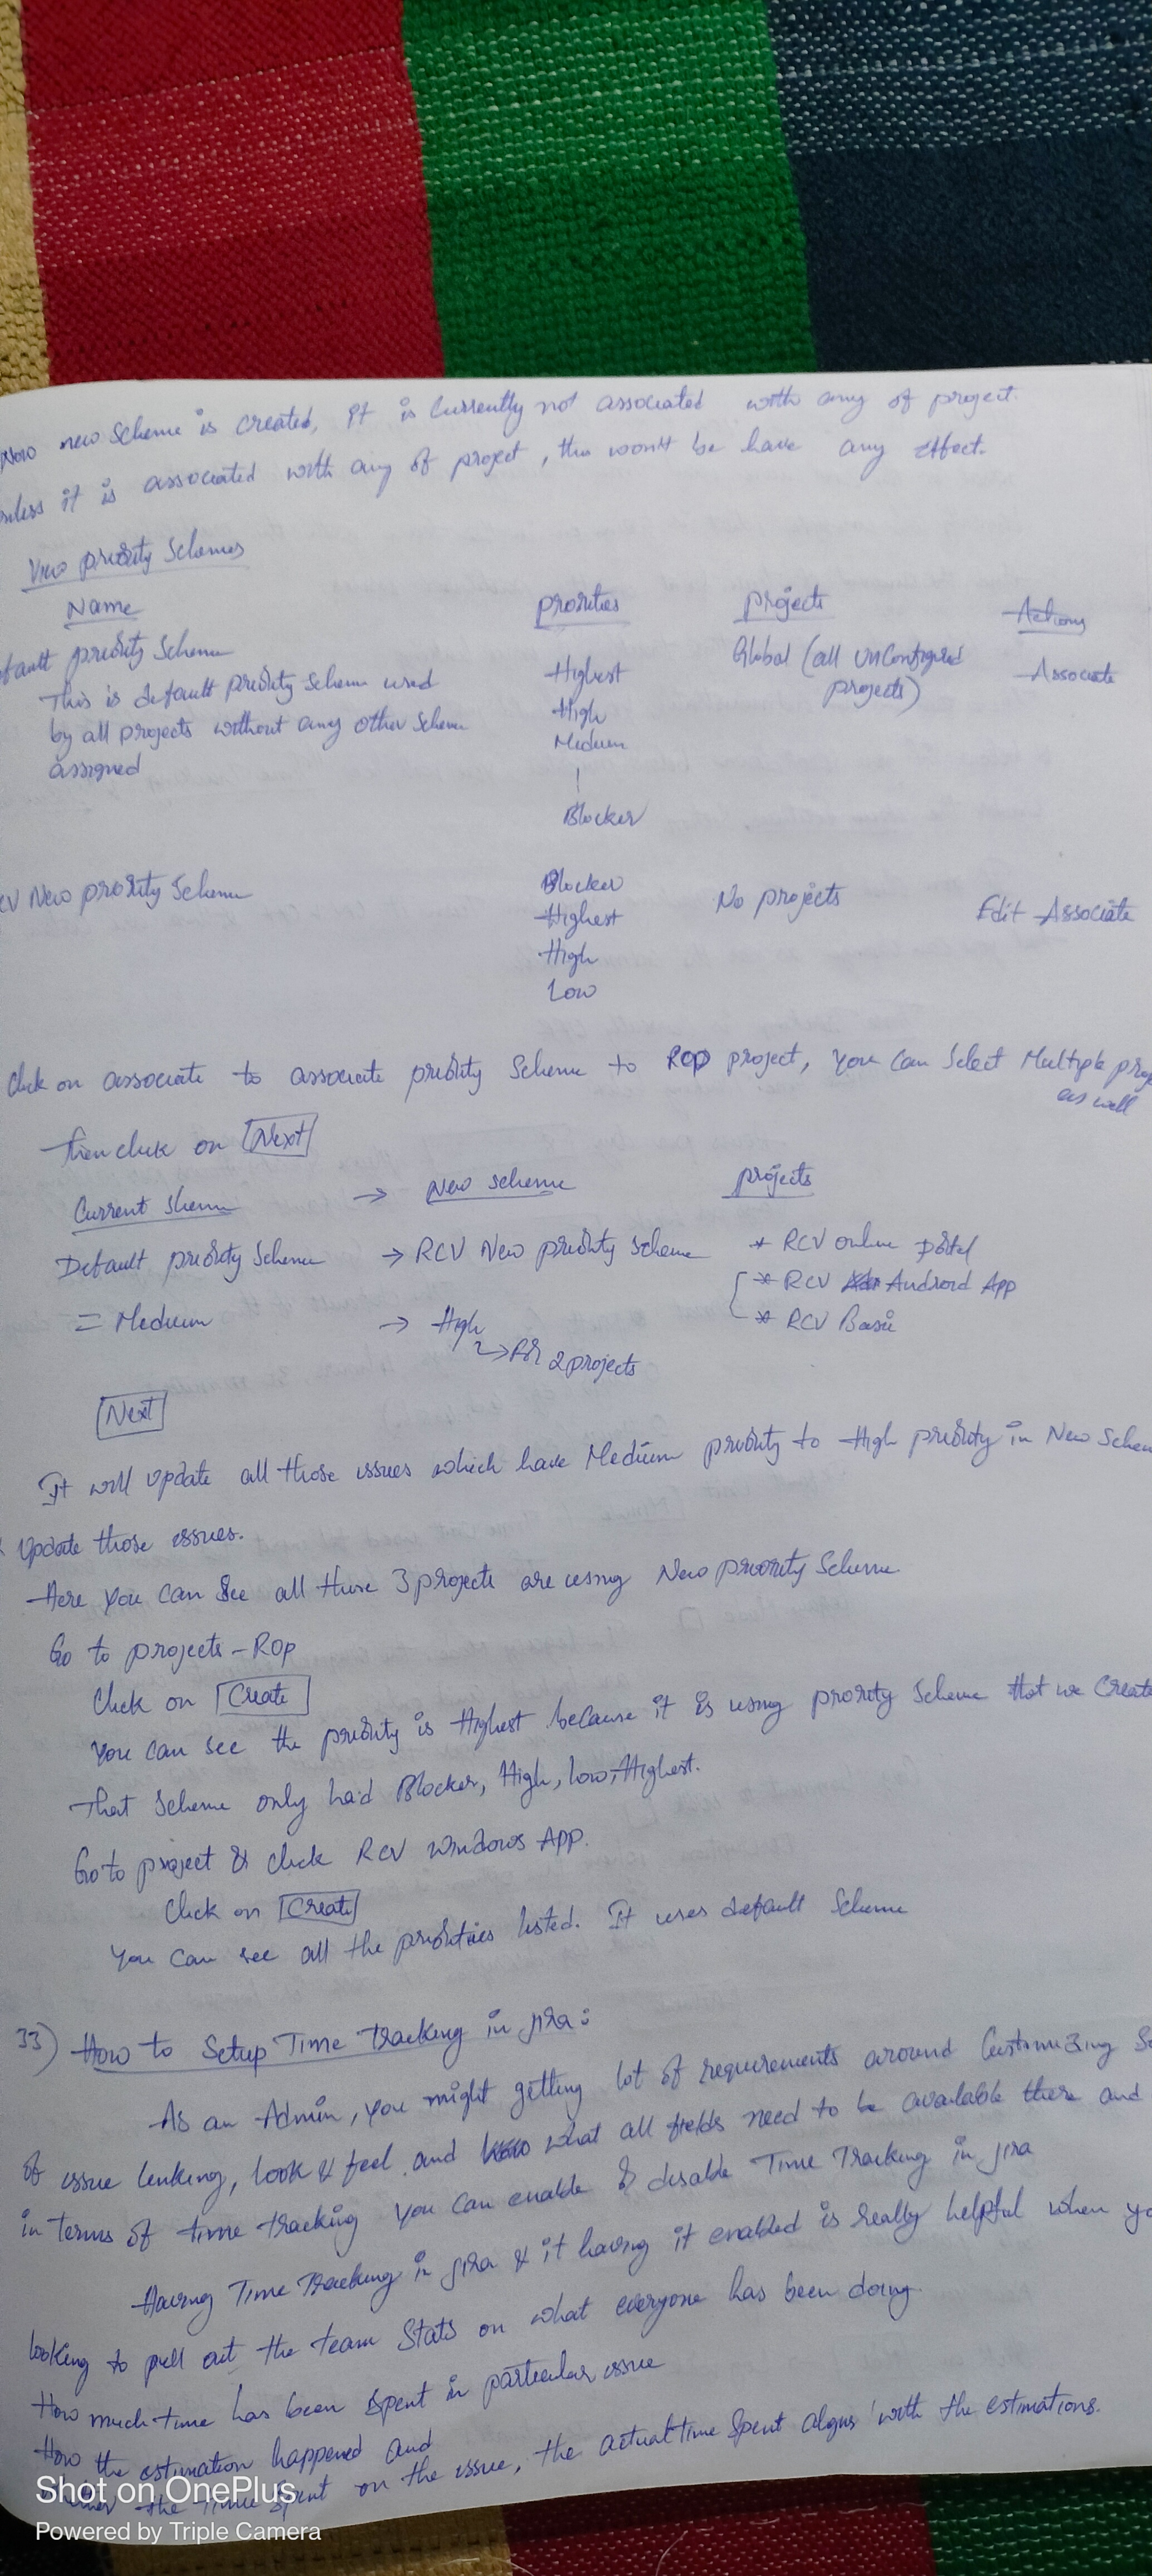 Now new scheme is created, It is currently not associated with any of project.
unless it is associated with any of project, this won't be have any effect.
View priority Schemes
Name priorities projects Actions
efault priority scheme Highest Global (all unconfigured projects) Associate
This is default priority scheme used High
by all projects without any other scheme Medium
assigned
|
Blocker
CV New priority Scheme Blocker No projects Edit Associate
Highest
High
Low
Click on associate to associate priority scheme to ROP project, you can select Multiple proje
as well
Then click on Next
Current sheme → New scheme projects
Default priority scheme → RCV New priority scheme * RCV online portal
* RCV Android App
= Medium → High * RCV Basic
↳ → for 2 projects
Next
It will update all those issues which have Medium priority to High priority in New Schem
Update those issues.
Here you can see all these 3 projects are using New priority Scheme
Go to projects - ROP
Click on Create
You can see the priority is Highest because it is using priority scheme that we Create
That scheme only had Blocker, High, low, Highest.
Go to project & click RCV windows App.
Click on Create
You can see all the priorities listed. It uses default scheme
33) How to Setup Time Tracking in jira:
As an Admin, you might getting lot of requirements around Customizing
of issue linking, look & feel and what all fields need to be available there and
in terms of time tracking you can enable & disable Time Tracking in jira
Having Time Tracking in jira & it having it enabled is really helpful when yo
looking to pull out the team stats on what everyone has been doing.
How much time has been spent in particular issue
How the estimation happened and
the time spent on the issue, the actual time spent aligns with the estimations.
Shot on OnePlus
Powered by Triple Camera